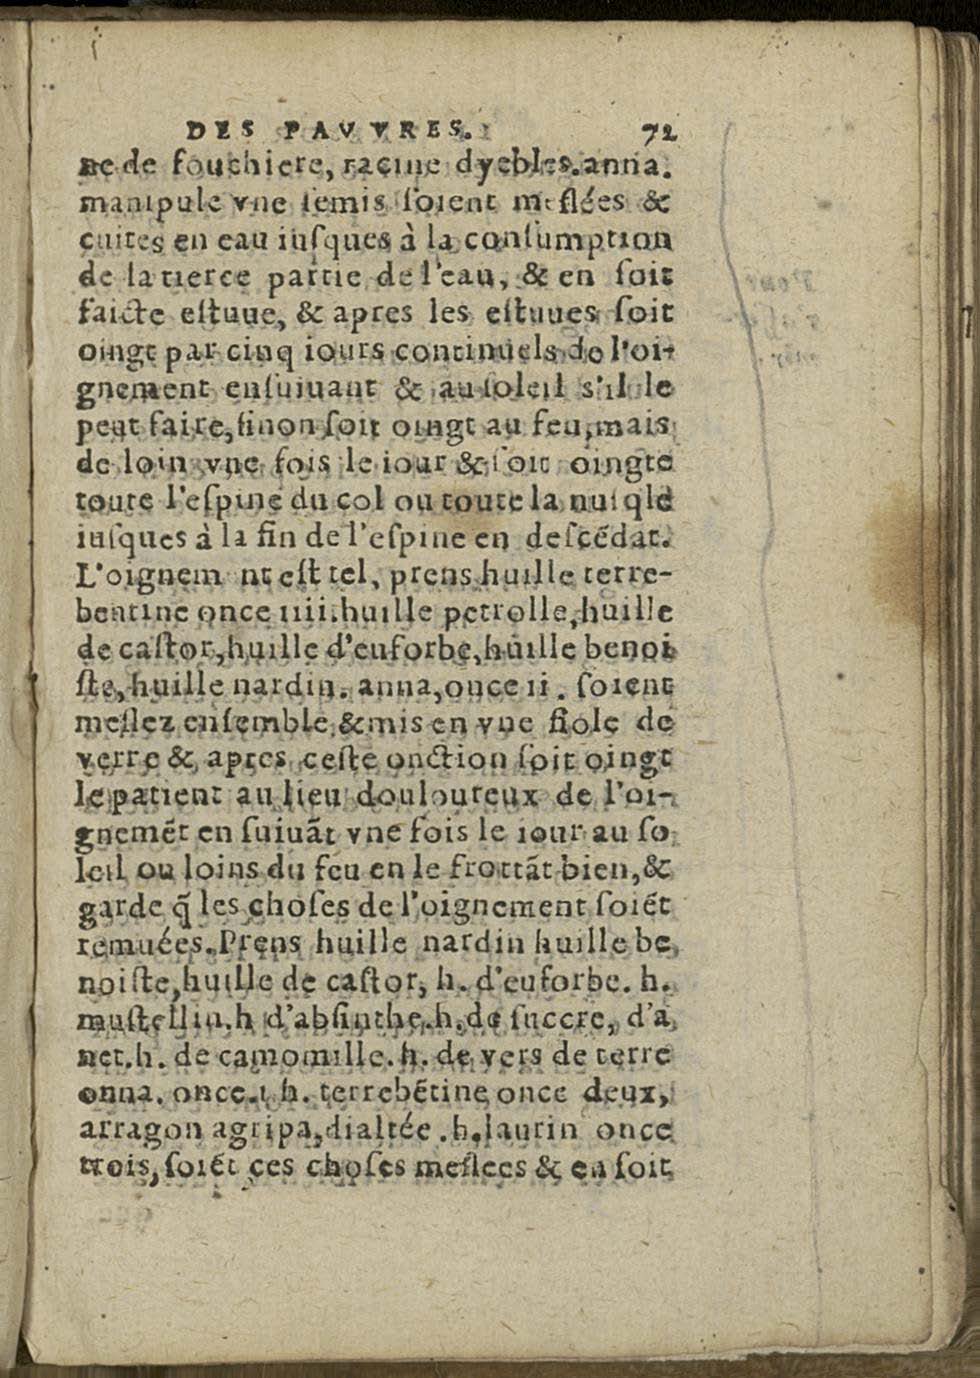 DES PAVVRES. 72
ne de fouchiere, racine dyebles. anna.
manipule vne semis soient meslées &
cuites en eau iusques à la consumption
de la tierce partie de l'eau, & en soit
faicte estuue, & apres les estuues soit
oingt par cinq iours continuels de l'oi-
gnement ensuiuant & au soleil s'il le
peut faire, sinon soit oingt au feu, mais
de loin vne fois le iour & soit oingte
toute l'espine du col ou toute la nuiqle
iusques à la fin de l'espine en descēdāt.
L'oignem nt est tel, prens huille terre-
bentine once iiii. huille petrolle, huille
de castor, huille d'euforbe, huille benoi
ste, huille nardin. anna, once ii. soient
meslez ensemble, & mis en vne fiole de
verre & apres ceste onction soit oingt
le patient au lieu douloureux de l'oi-
gnemēt en suiuāt vne fois le iour au so
leil ou loins du feu en le frottāt bien, &
garde q̄ les choses de l'oignement soiēt
remuées. Prens huille nardin huille be
noiste, huille de castor, h. d'euforbe. h.
mustellin. h d'absinthe. h. de succre, d'a
net. h. de camomille. h. de vers de terre
onna. once. i h. terrebētine once deux,
arragon agripa, dialtée. h. laurin once
trois, soiēt ces choses meslees & en soit